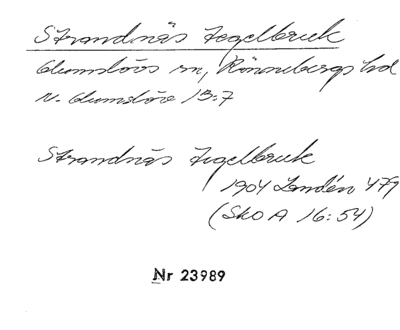 Strandnäs Tegelbruk
Glumslövs sn, Rönnebergs hd
N. Glumslöv 13:7
Strandnäs Tegelbruk
1904 Landén 479
(SkO A 16:54)
Nr 23989